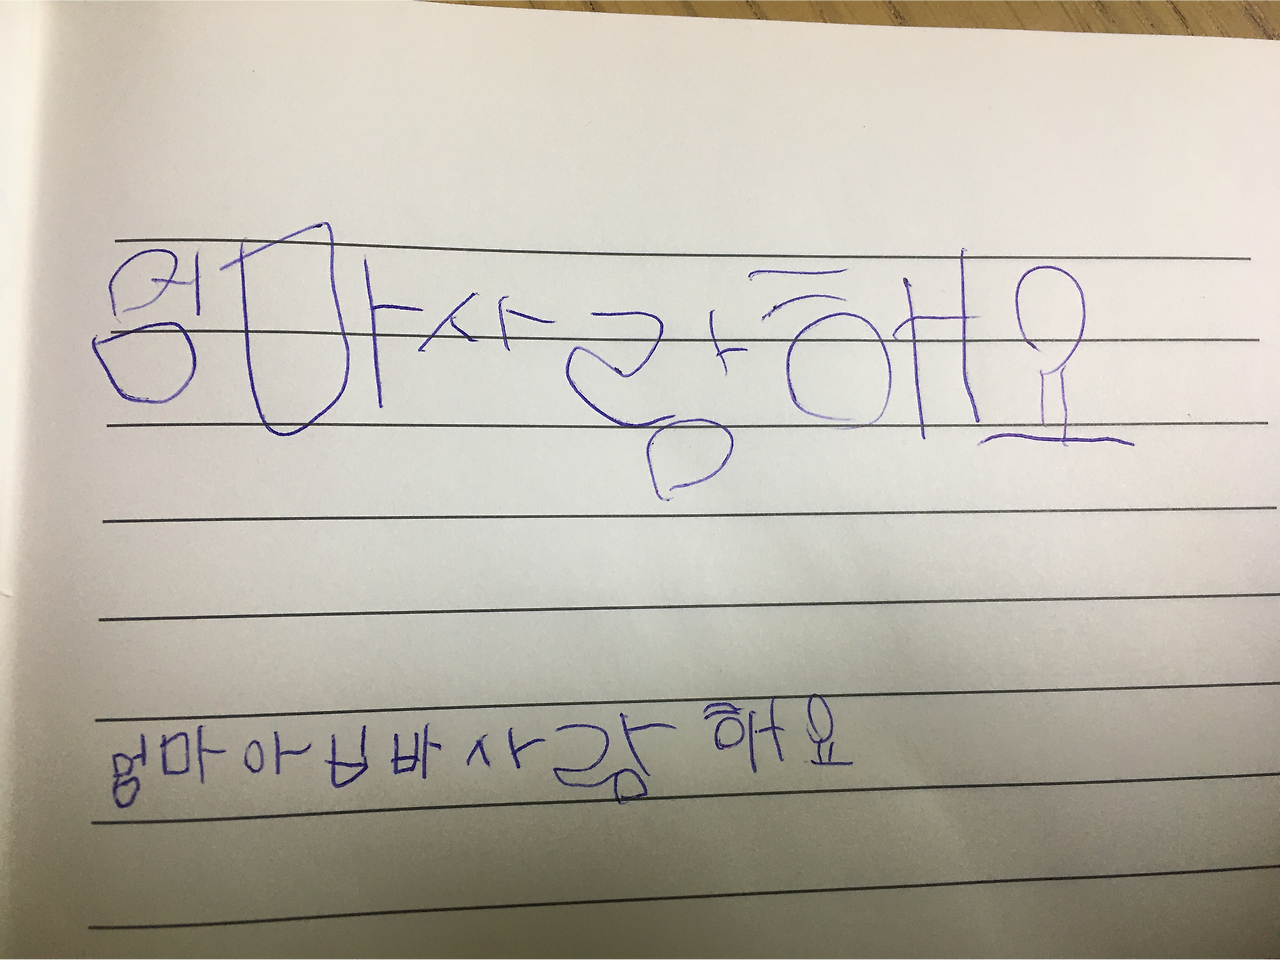 엄마사랑해요
엄마아빠사랑해요